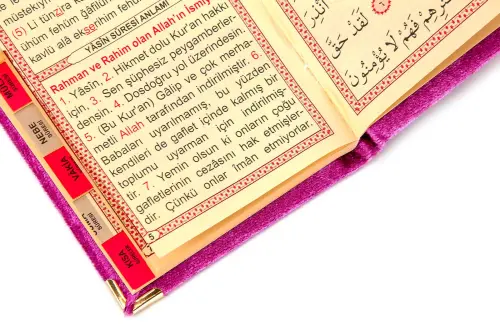 müstekıy
(5) Li tünzi
ühüm fehüm ğafilu
kavlü alâ ekserihim fehüm
YÂSİN SÛRESİ ANLAMI
Rahman ve Rahim olan Allah'ın İsmiy
1. Yâsin. 2. Hikmet dolu Kur'an hakkı
için. 3. Sen şüphesiz peygamberler-
densin. 4. Dosdoğru yol üzerindesin.
5. (Bu Kur'an) Gâlip ve çok merha-
metli Allah tarafından indirilmiştir. 6.
Babaları uyarılmamış, bu yüzden
kendileri de gaflet içinde kalmış bir
toplumu uyarman için indirilmiş-
tir. 7. Yemin olsun ki onların çoğu
gafletlerinin cezâsını hak etmişler-
dir. Çünkü onlar îmân etmiyorlar.
5
لَقَدْ حَقَّ
فَهُمْ لَا يُؤْمِنُونَ
MÜLK
SÛRESİ
NEBE
SÛRESİ
VAKIA
KISA